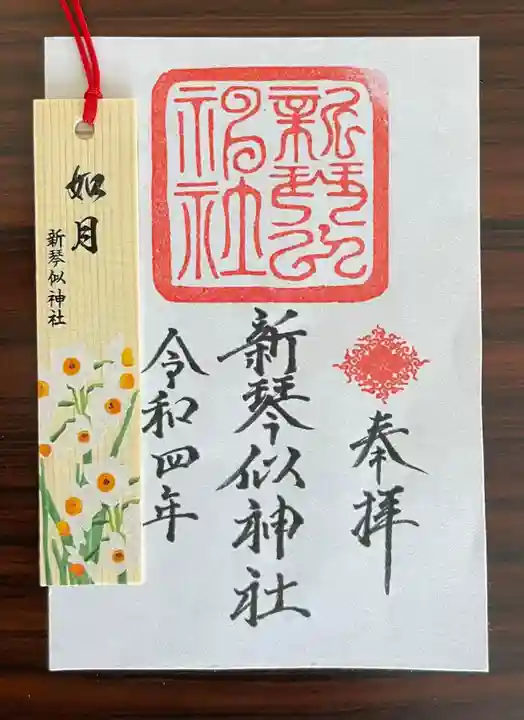 奉拝
新琴似神社
新琴似神社
令和四年
如月
新琴似神社